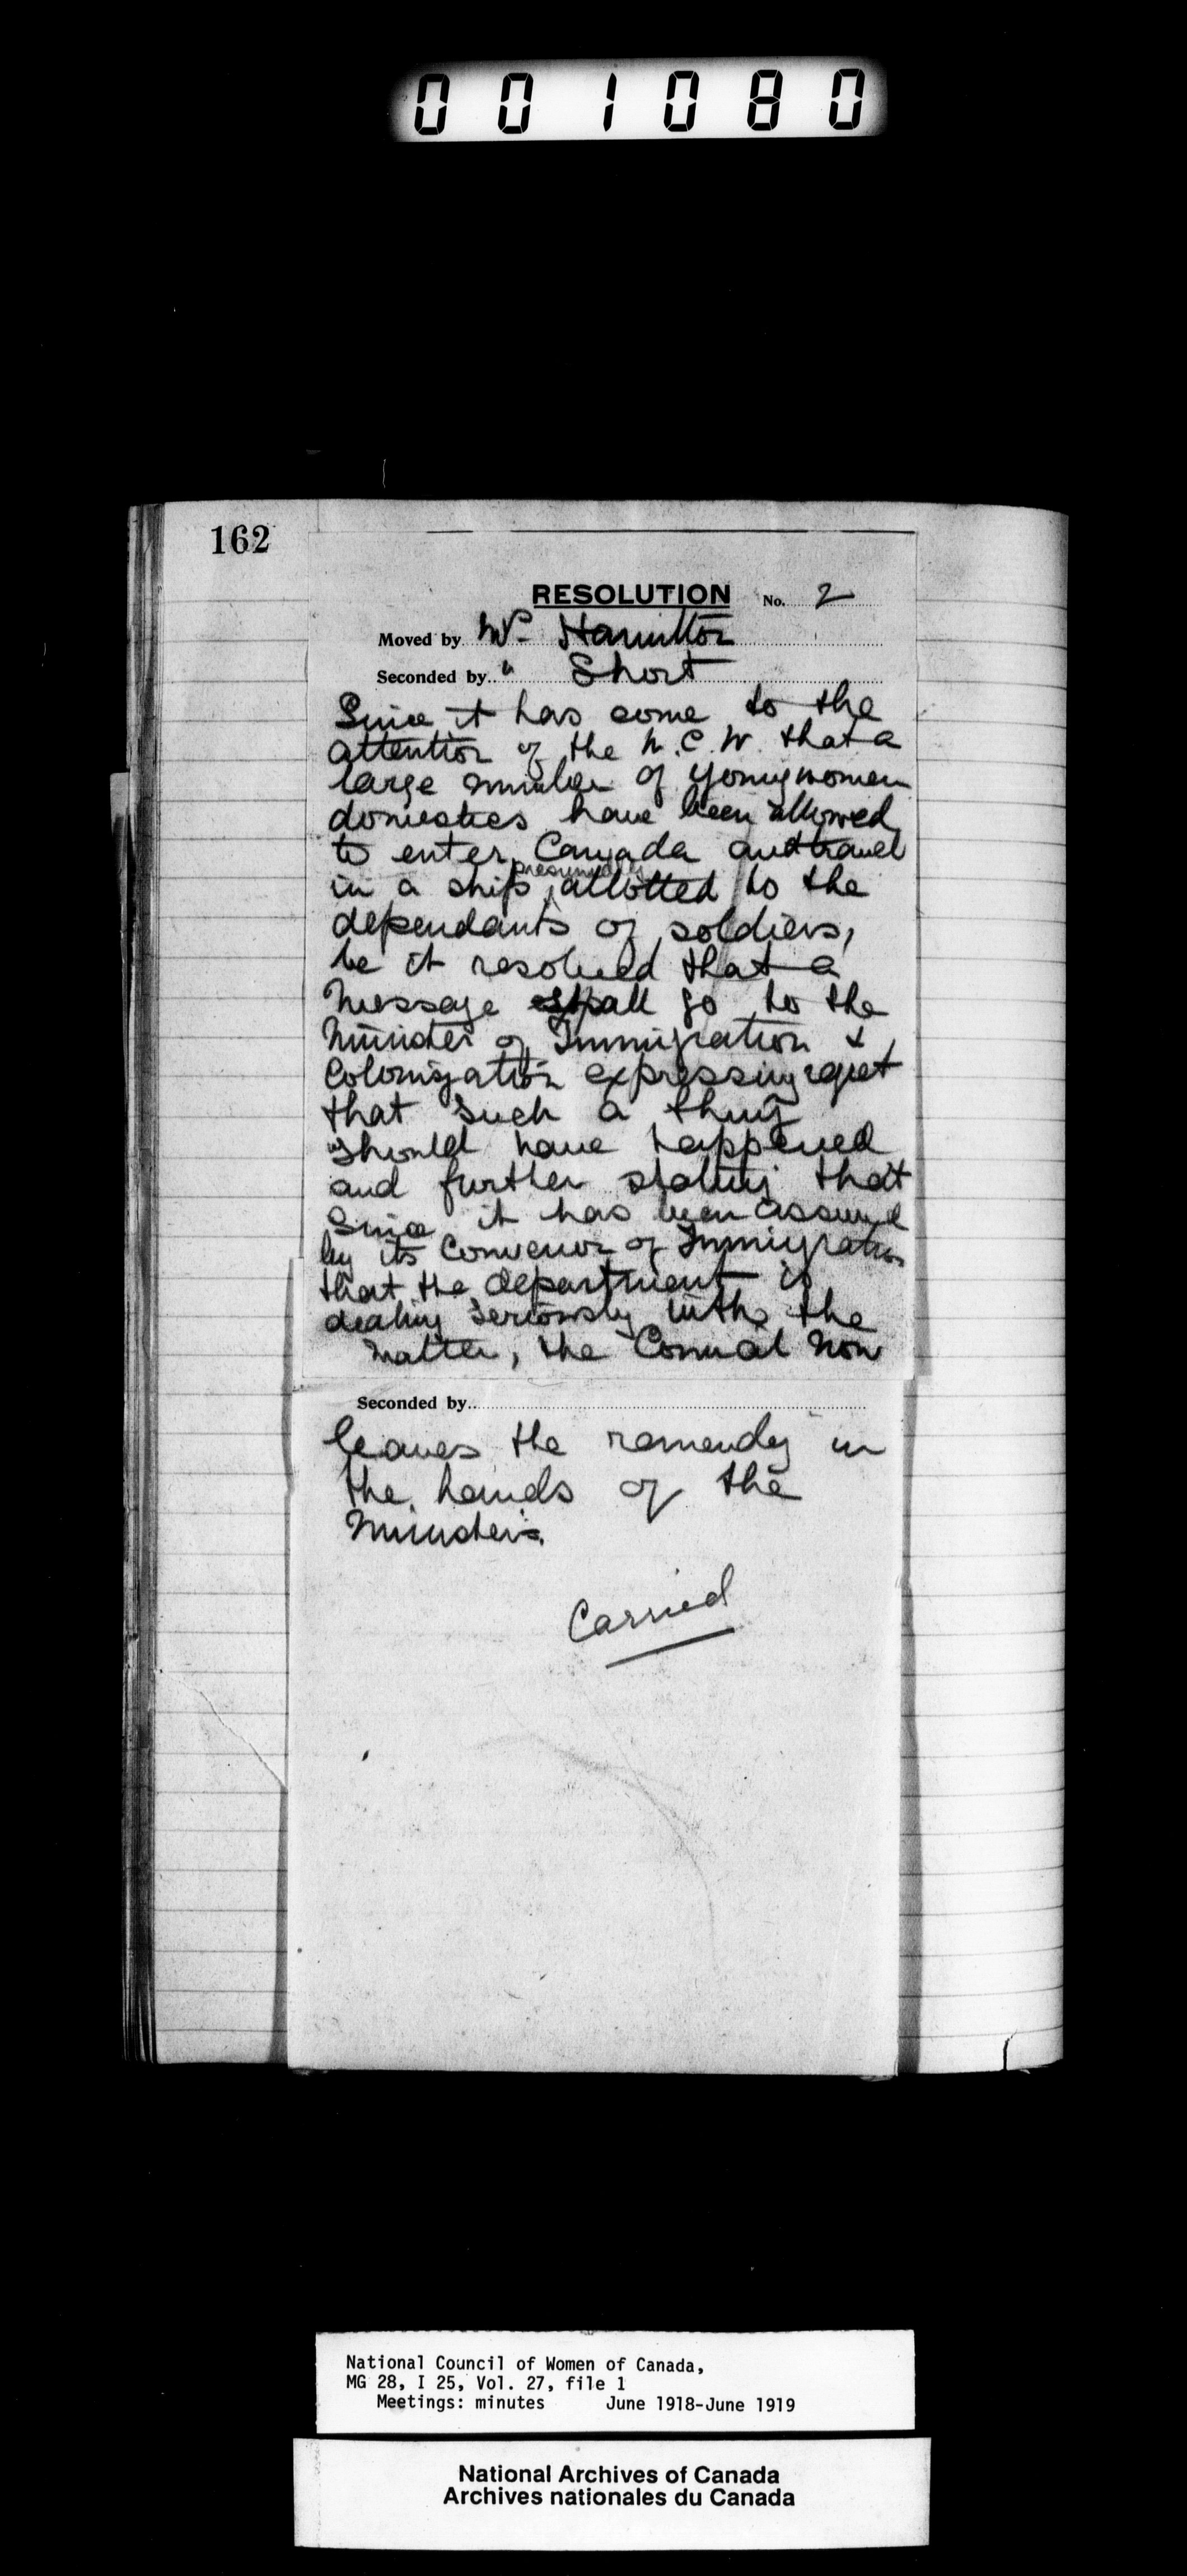 001080
162
RESOLUTION No. 2
Moved by Mrs Hamilton
Seconded by " Short
Since it has come to the
attention of the N.C.W. that a
large number of young women
domestics have been allowed
to enter Canada and travel
presumably
in a ship allotted to the
dependants of soldiers,
be it resolved that a
message shall go to the
Minister of Immigration &
Colonization expressing regret
that such a thing
should have happened
and further stating that
Since it has been assured
by its Convenor of Immigration
that the department is
dealing seriously with the
matter, the Council now
Seconded by
leaves the remendy in
the hands of the
Minister.
Carried
National Council of Women of Canada,
MG 28, I 25, Vol. 27, file 1
Meetings: minutes June 1918-June 1919
National Archives of Canada
Archives nationales du Canada